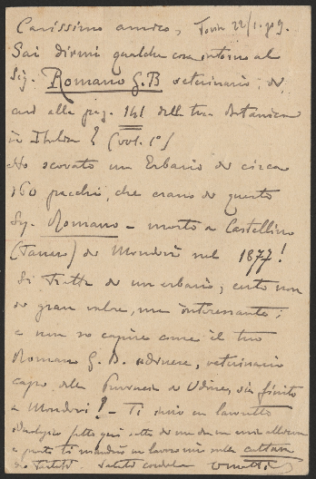 Carissimo amico, Torino 22/1.909.
Sai dirmi qualche cosa intorno al
Sig. Romano G.B veterinario, di
cui alla pag. 141 della tua Botanica
in Italia? (vol. 1°)
Ho scovato un Erbario di circa
160 pacchi, che erano di questo
Sig. Romano - morto a Castellino
(Tanaro) di Mondovì nel 1877!
Si tratta di un erbario, certo non
di gran valore, ma interessante;
e non so capire come il tuo
Romano G. B. udinese, veterinario
capo della Provincia di Udine, sia finito
a Mondovì! - Ti invio un lavoretto
fatto da un mio
e presto ti manderò un lavoro mio sulla
Saluti cordiali